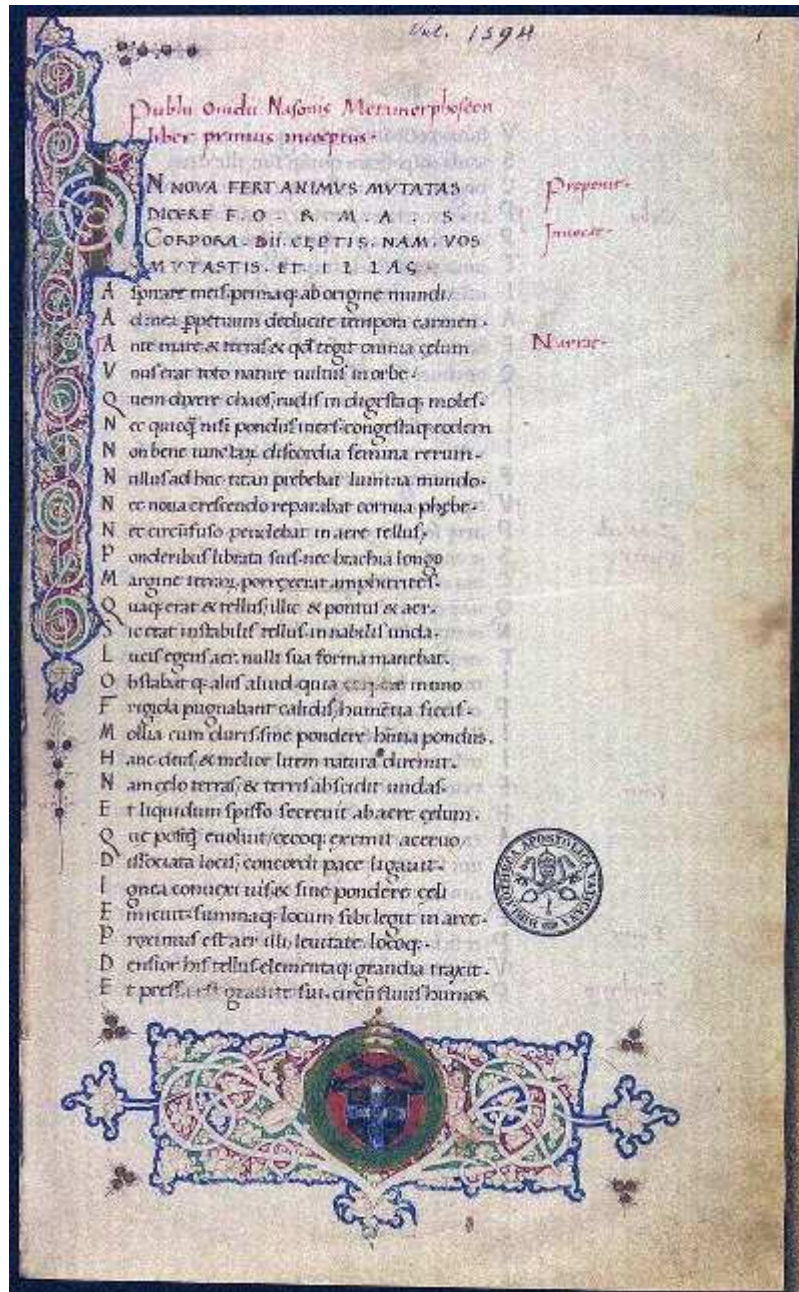 Vat. 1594
1
Publii Ouidii Nasonis Metamorphoseon
liber primus inceptus.
IN NOVA FERT ANIMVS MVTATAS
Proponit.
DICERE F O . R . M . A . S
CORPORA. DII CEPTIS. NAM. VOS
Inuocat.
MVTASTIS. ET. I L LAS.
A spirate meis. primaq; ab origine mundi.
A d mea ꝑpetuum deducite tempora carmen.
A nte mare & terras & qđ tegit omnia celum
Narrat.
V nus erat toto nature uultus in orbe.
Q uem dixere chaos, rudis indigestaq; moles.
N ec quicq̃ nisi pondus iners. congestaq; eodem
N on bene iunctaꝝ discordia semina rerum.
N ullus adhuc titan prebebat lumina mundo.
N ec noua crescendo reparabat cornua phębe.
N ec circũfuso pendebat in aere tellus,
P onderibus librata suis. nec brachia longo
M argine terraꝝ porrexerat amphitrites.
Q uaq; erat & tellus, illic & pontus & aer.
S ic erat instabilis tellus. innabilis unda.
L ucis egens aer. nulli sua forma manebat.
O bstabat q; aliis aliud. quia corpore in uno
F rigida pugnabant calidis, humẽtia siccis.
M ollia cum duris. sine pondere hñtia pondus.
H anc deus, & melior litem natura diremit.
N am celo terras, & terris abscidit undas.
E t liquidum spisso secreuit ab aere cęlum.
Q ue postq̃ euoluit, cecoq; exemit aceruo
D issociata locis, concordi pace ligauit.
I gnea conuexi uis, & sine pondere celi
E micuit. summaq; locum sibi legit in arce.
P roximus est aer illi leuitate. locoq;.
D ensior his tellus. elementaq; grandia traxit.
E t pressa est grauitate sui. circũfluus humor
BIBLIOTHECA APOSTOLICA VATICANA